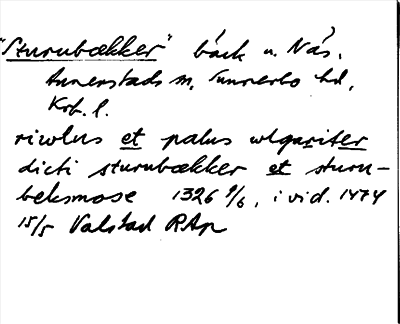 "Sturubækker" bäck u. Näs,
Annerstads sn, Sunnerbo hd,
Krb. l.
riwlus et palus wlgariter
dicti sturubækker et sturu-
beksmose 1326 9/6, i vid. 1474
15/5 Valstad RAp